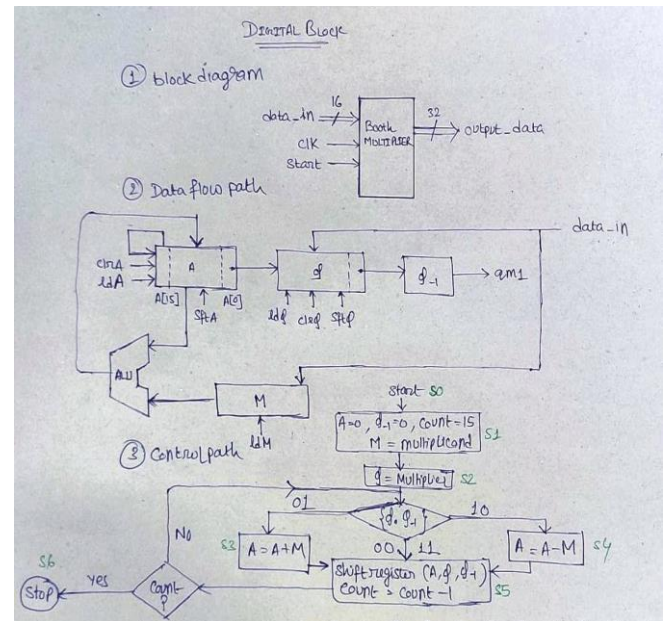 DIGITAL BLOCK
① block diagram
data_in
16
clk
Start
Booth
MULTIPLIER
32
output_data
② Data flow path
data_in
clrA
ldA
A
A[15]
A[0]
SftA
Q
ldQ
clrQ
SftQ
Q-1
qm1
ALU
M
ldM
③ Control path
start S0
A=0, Q-1=0, count=15
M = multiplicand
S1
Q = Multiplier
S2
01
{Q0 Q-1}
10
No
S3
A=A+M
00
11
A=A-M
S4
Shift register (A,Q,Q-1)
Count = count-1
S5
S6
Stop
yes
Count
?